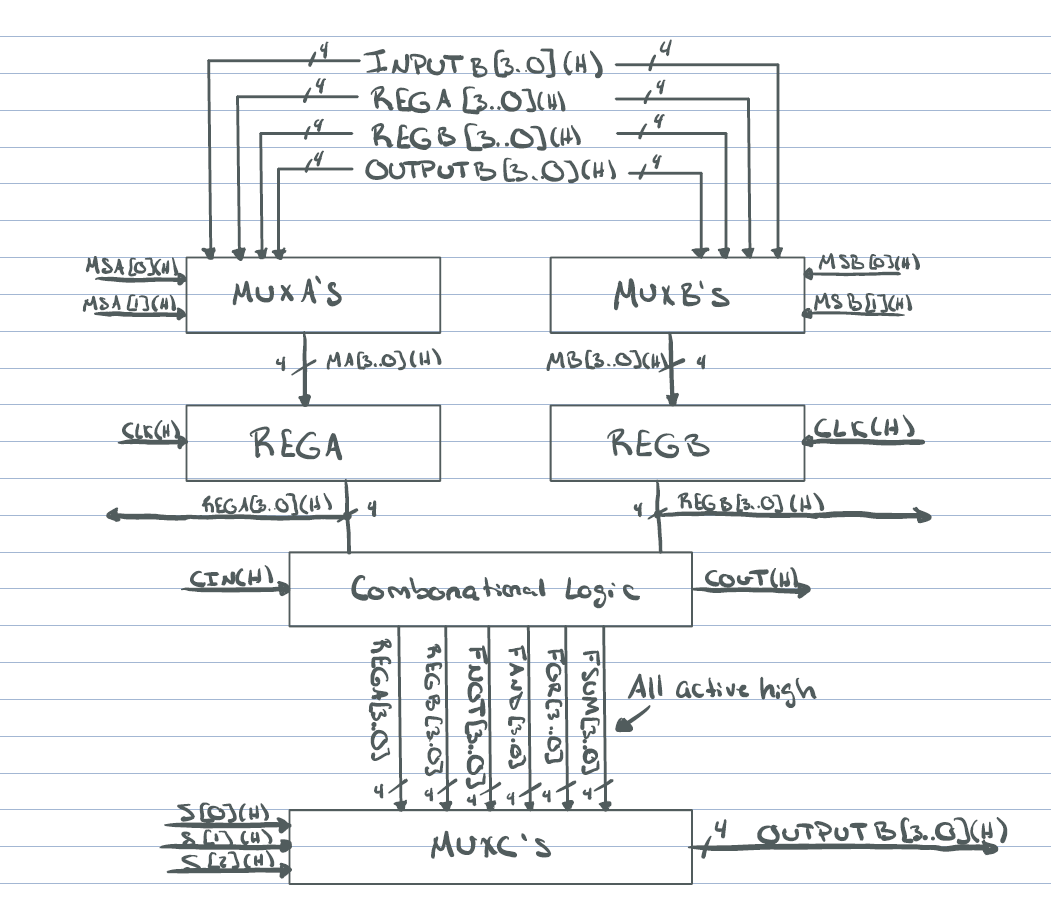 4 INPUTB[3..0](H) 4
4 REGA[3..0](H) 4
4 REGB[3..0](H) 4
4 OUTPUTB[3..0](H) 4
MSA[0](H) MSB[0](H)
MUXA'S MUXB'S
MSA[1](H) MSB[1](H)
4 MA[3..0](H) MB[3..0](H) 4
CLK(H) REGA REGB CLK(H)
REGA[3..0](H) 4 4 REGB[3..0](H)
CIN(H) Combonational Logic COUT(H)
REGA[3..0]
REGB[3..0]
FNOT[3..0]
FAND[3..0]
FOR[3..0]
FSUM[3..0]
All active high
4 4 4 4 4 4
S[0](H)
S[1](H) MUXC'S 4 OUTPUTB[3..0](H)
S[2](H)